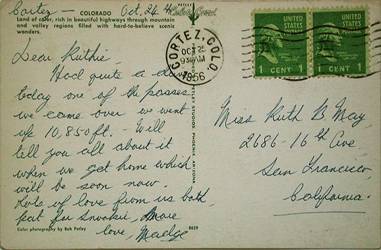 Cortez - COLORADO Oct. 24
Land of color, rich in beautiful highways through mountain
and valley regions filled with hard-to-believe scenic
wonders.
Dear Ruthie:
Had quite a day
today one of the passes
we came over we went
up 10,850 ft. - Will
tell you all about it
when we get home which
will be soon now.
Lots of love from us both
pat for Snookie, more
love, Madge
Color photography by Bob Petley
PETLEY STUDIOS PHOENIX, ARIZONA
CORTEZ, COLO.
OCT 25
9 30 AM
1956
UNITED STATES POSTAGE
1 CENT 1
UNITED STATES POSTAGE
1 CENT 1
Miss Ruth B. May
2686 - 16th Ave
San Francisco,
California.